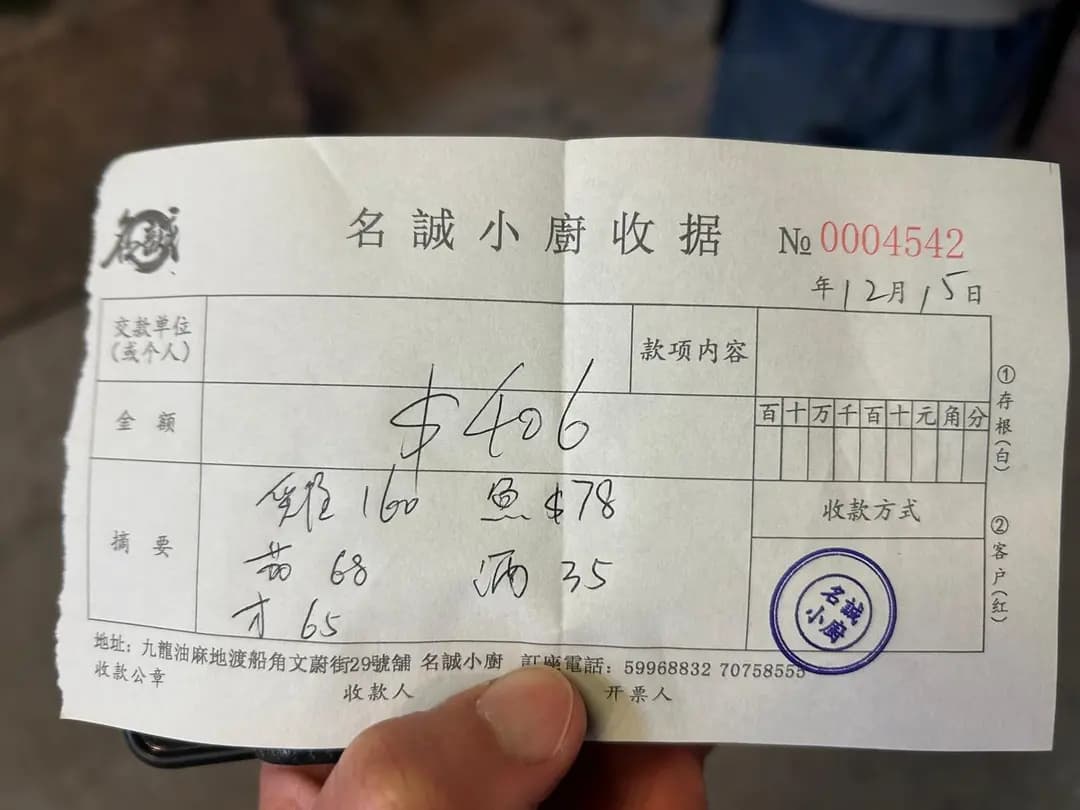 名誠
名誠小廚收据 № 0004542
年12月15日
交款单位
(或个人)
款项内容
金额
$406
百十万千百十元角分
摘要
160 魚$78
茄 68 酒 35
才 65
收款方式
名誠
小廚
①存根(白)
②客户(红)
地址：九龍油麻地渡船角文蔚街29號舖 名誠小廚 訂座電話：59968832 70758555
收款公章 收款人 开票人